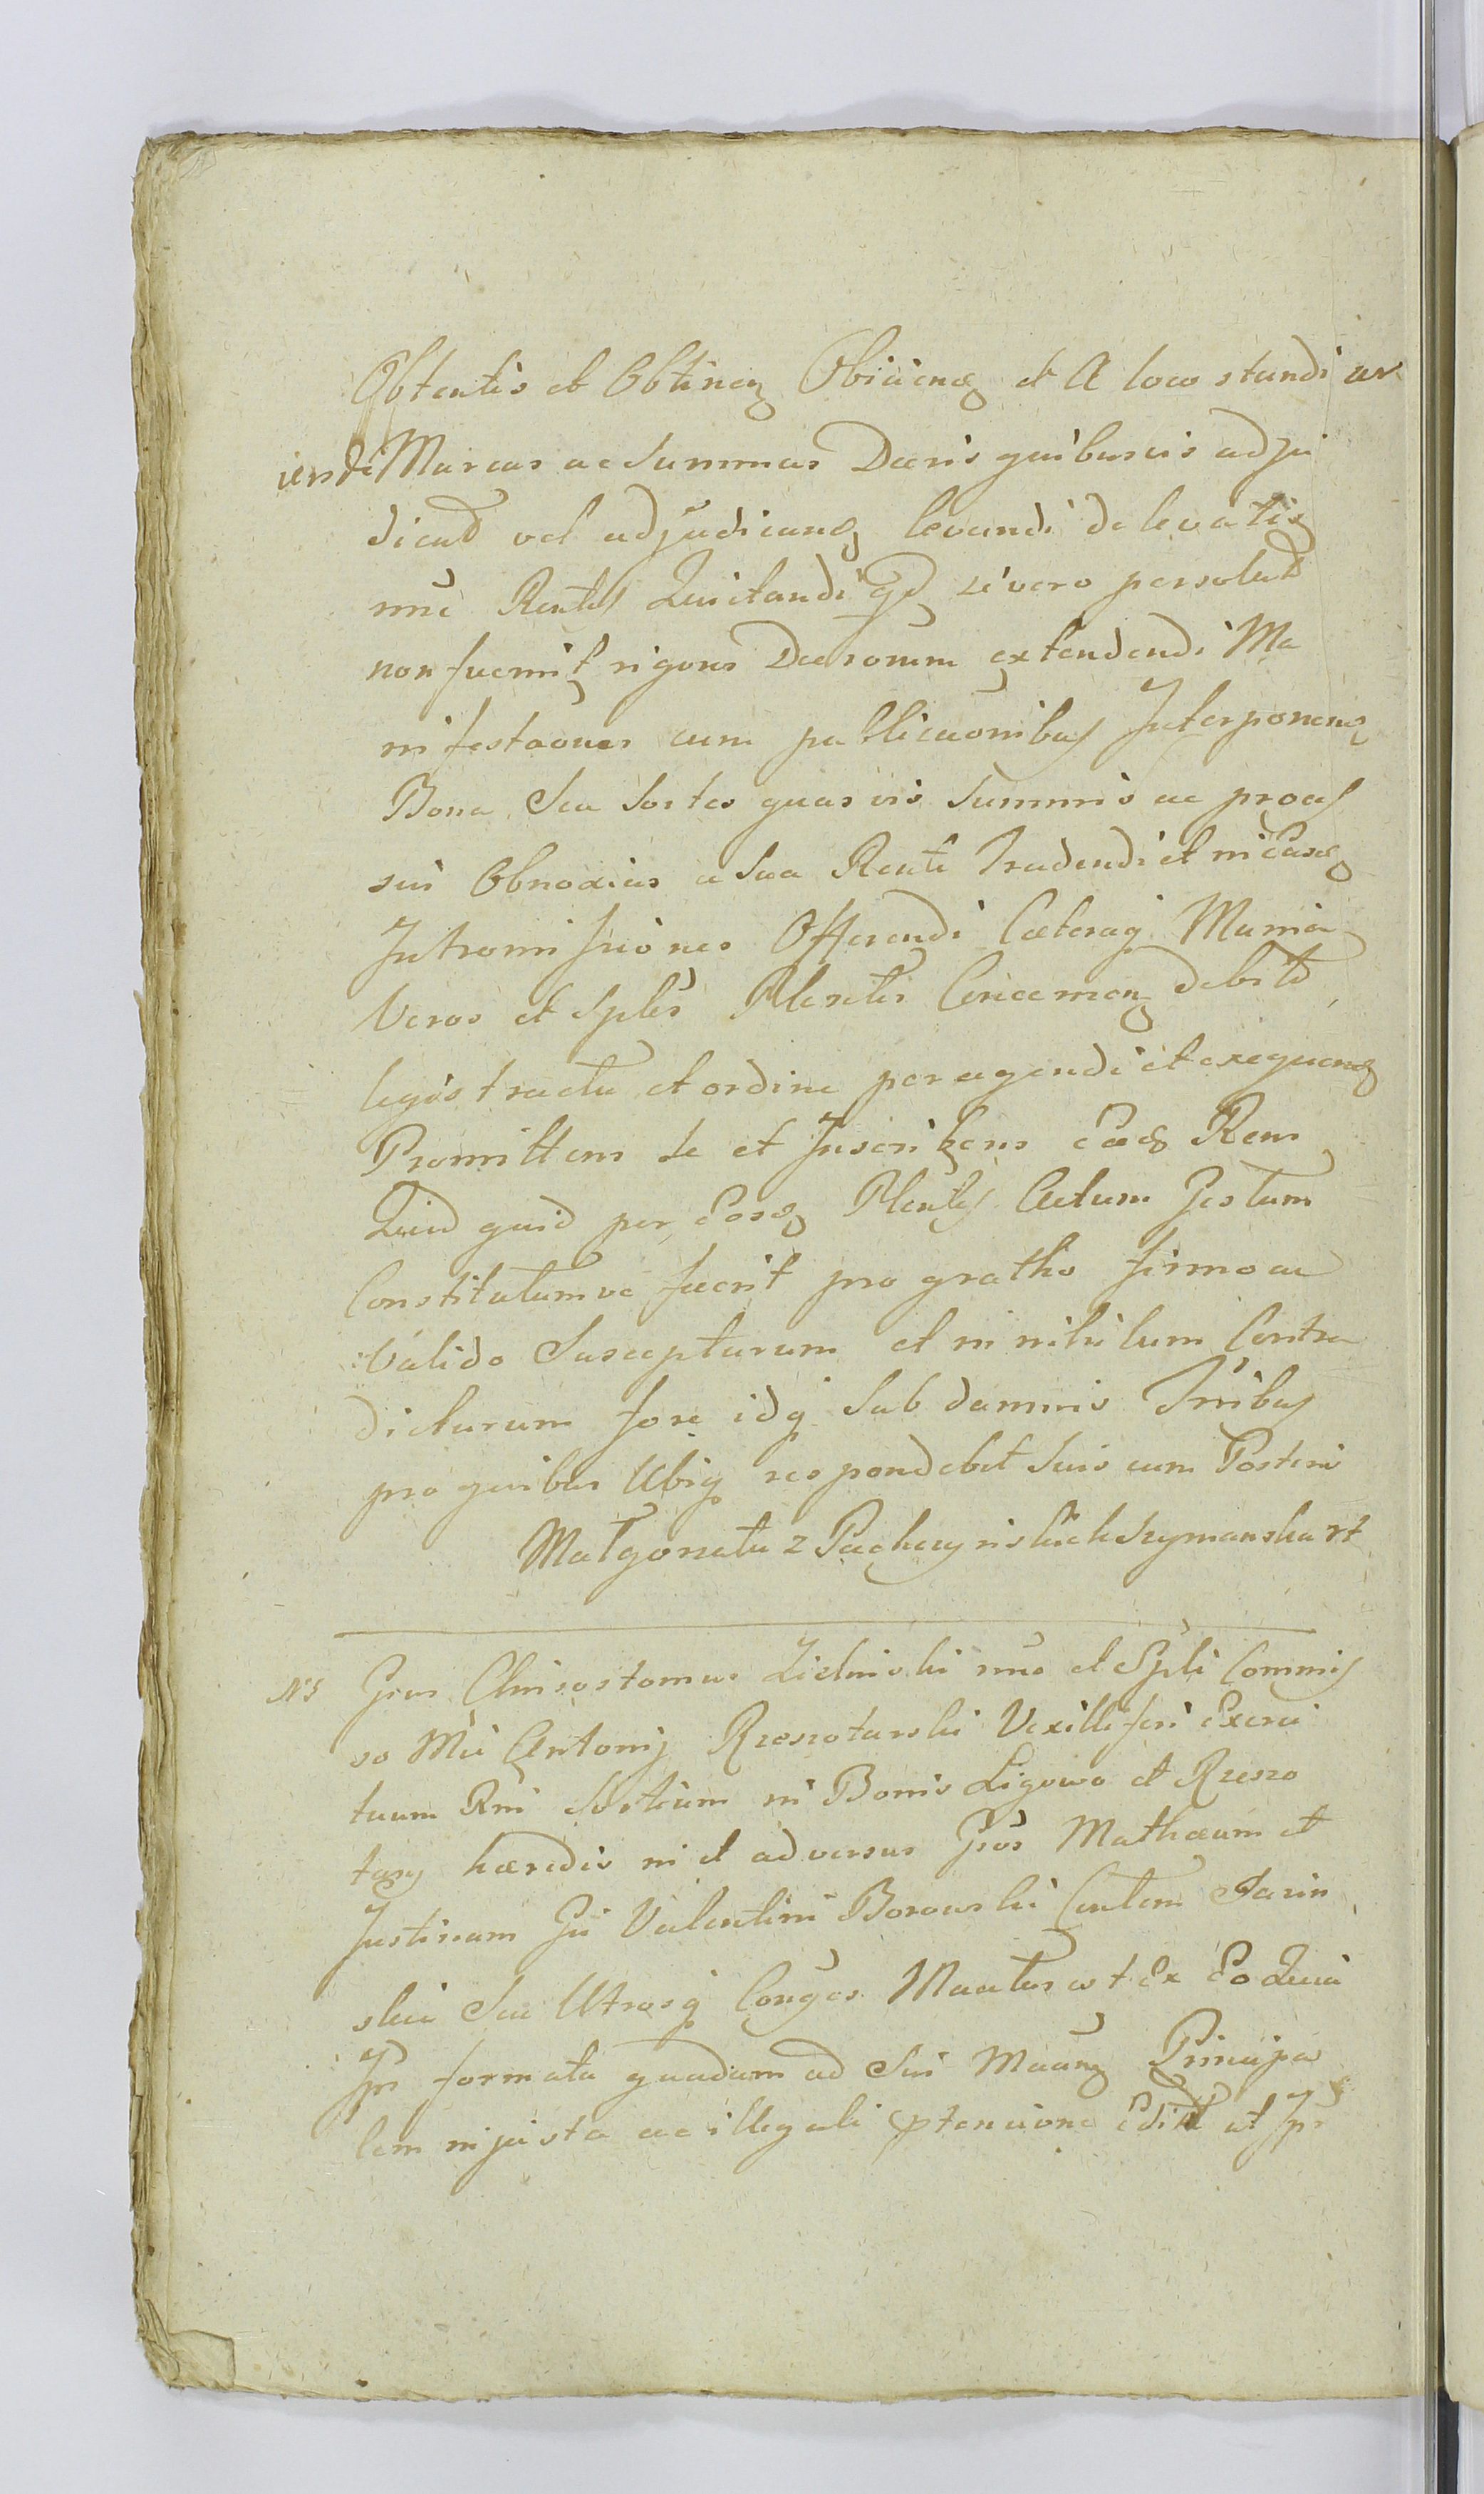 Obtentis et Obtinen Obiicien et A loco standi ar
iendi Marcas ac Summas Decris quibusvis adju
dicat vel adjudican levandi de levatis
nne Rentes Quietandi qd si vero persolut
non fuerint rigores Decrorum extendendi Ma
nifestaones cum publicaonibus Interponen
Bona Seu Sortes quasvis Summis ac proces
sui Obnoxias a Sua Rente Tradendi et in Easd
Intromissiones Offerendi Caeteraq Munia
Veros et Sples Plentes Concernen debito
legis tractu et ordine peragendi et exequen
Promittens se et Inscribens Eade Rens
Quid quid per Eosd Plentes Actum Gestum
Constitutumve fuerit pro gratho firmo ac
valido Suscepturum et in nihilum Contra
dicturum fore idq Sub damnis Tribus
pro quibus Ubiq respondebit Suis cum Posteris
Małgorzata z Pachczynskich Szymanska rt
N5 Gsus Chrisostomus Zielinski nno et Spli Commis
so Mci Antonij Rzeszotarski Vexilliferi Exerci
tuum Rni Sortium in Bonis Ligowo et Rzeszo
tary haeredis in et adversus Gsos Mathaeum et
Justinam Gsi Valentini Borowski Contem Jarin
skie Seu Utrosq Conges Mantes est Ex Eo Quia
Ipi formata quadam ad Sui Maang Principa
lem injusta ac illegali ptensione Edict ut Ipi